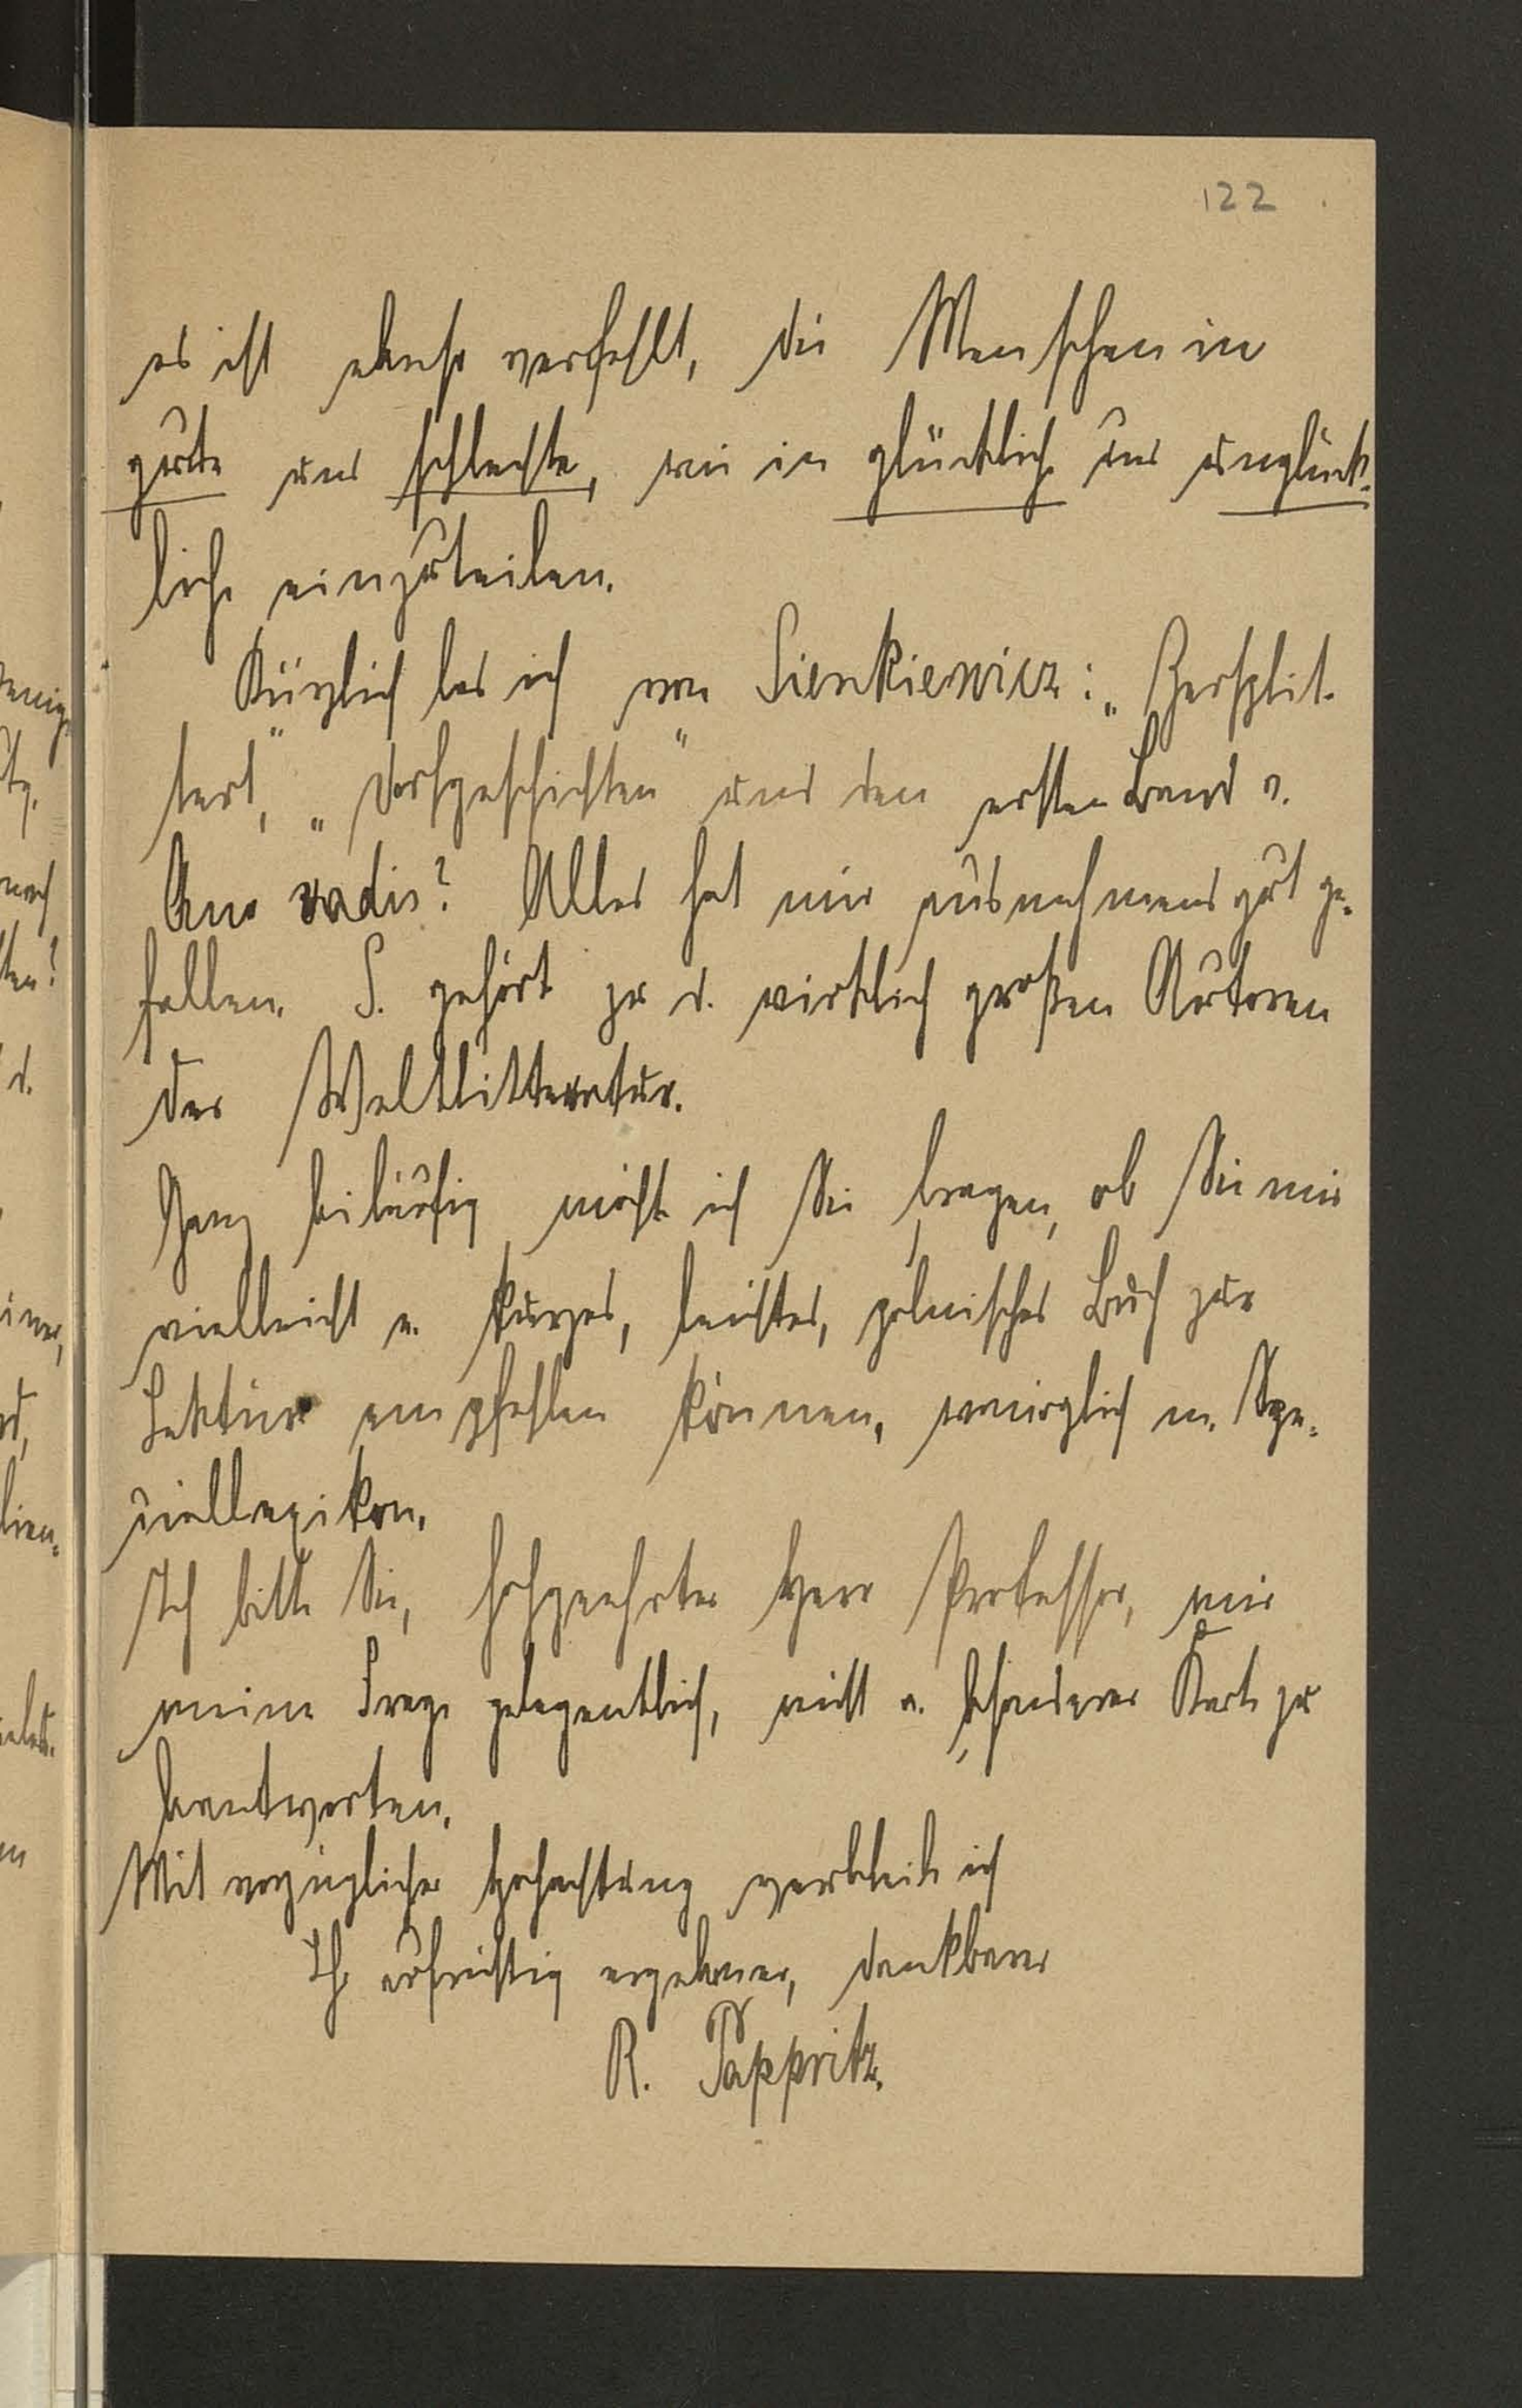 122
es ist ebenso verfehlt, die Menschen in
gute und schlechte, wie in glückliche und unglück-
liche einzuteilen.
Kürzlich las ich von Sienkiewicz: „Zersplit-
tert", „Dorfgeschichten" und den ersten Band v.
Quo vadis? Alles hat mir ausnehmend gut ge-
fallen. S. gehört zu d. wirklich großen Autoren
der Weltlitteratur.
Ganz beiläufig möcht ich Sie fragen, ob Sie mir
vielleicht e. kurzes, leichtes, polnisches Buch zur
Lektüre empfehlen können, womöglich m. Spe-
ziallexikon.
Ich bitte Sie, hochgeehrter Herr Professor, mir
meine Frage gelegentlich, nicht a. besonderer Karte zu
beantworten.
Mit vorzüglicher Hochachtung verbleibe ich
Ihr aufrichtig ergebener, dankbarer
R. Pappritz.